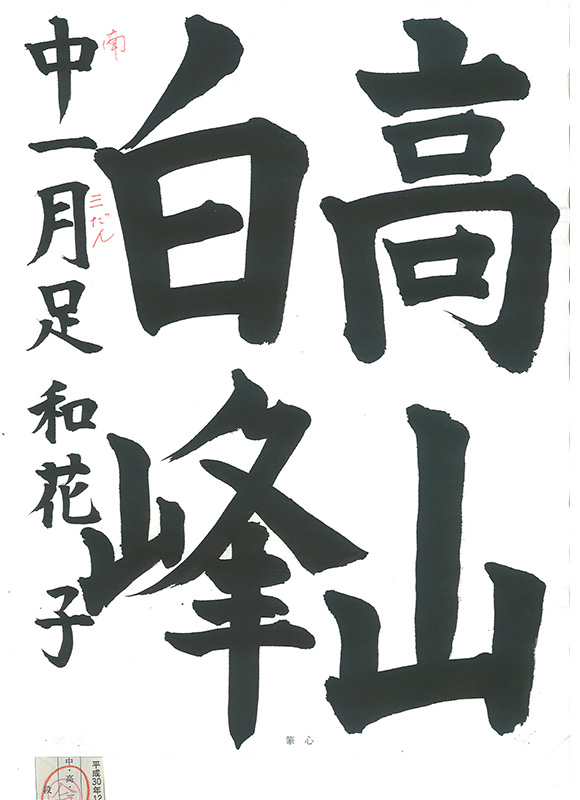 高山
白峰
南
中一月足 和花子
三だん
心筆
平成30年12
中・高・
段